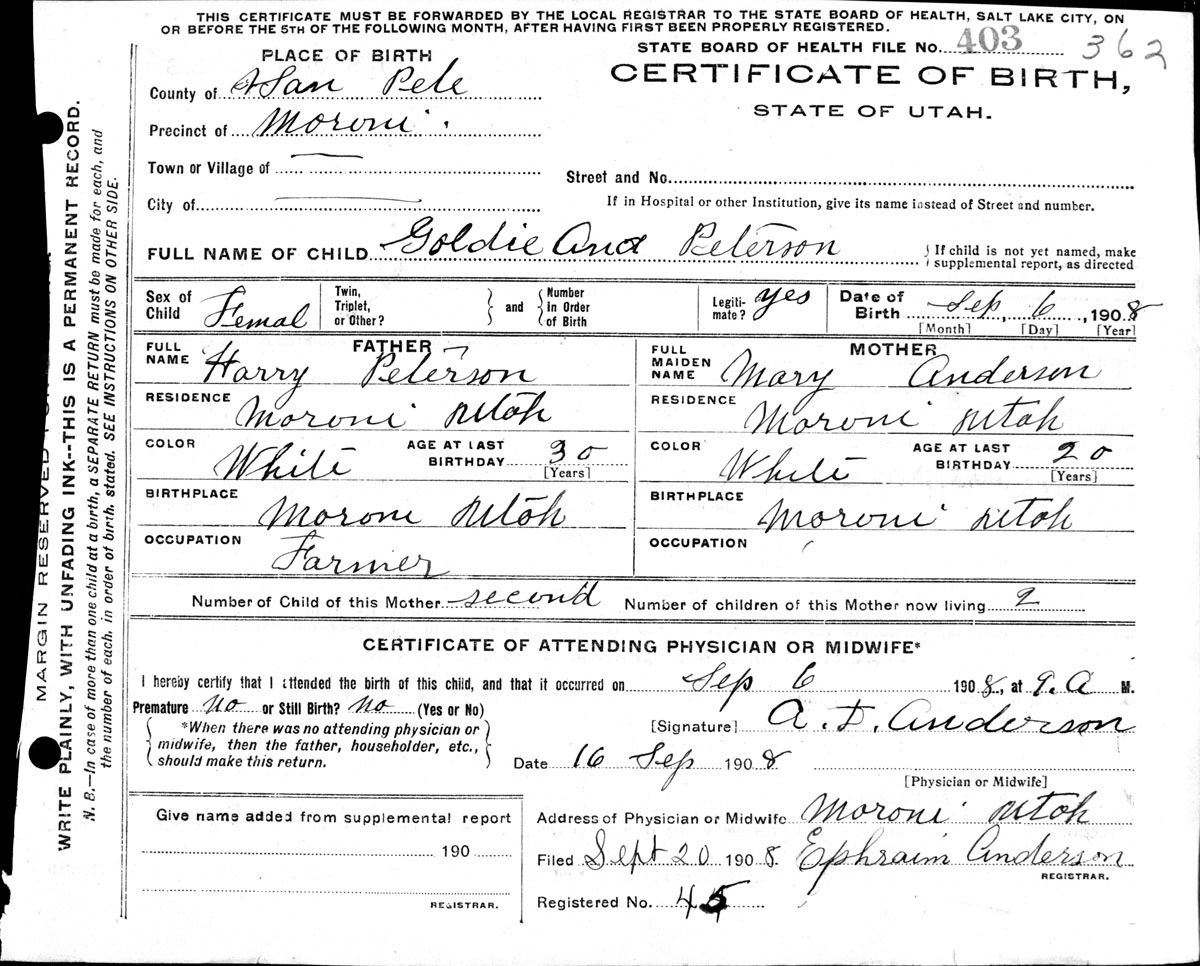 THIS CERTIFICATE MUST BE FORWARDED BY THE LOCAL REGISTRAR TO THE STATE BOARD OF HEALTH, SALT LAKE CITY, ON
OR BEFORE THE 5TH OF THE FOLLOWING MONTH, AFTER HAVING FIRST BEEN PROPERLY REGISTERED.
PLACE OF BIRTH
STATE BOARD OF HEALTH FILE No. 403 362
CERTIFICATE OF BIRTH,
STATE OF UTAH.
County of San Pete
Precinct of Moroni
Town or Village of
Street and No.
City of
If in Hospital or other Institution, give its name instead of Street and number.
FULL NAME OF CHILD Goldie And Peterson
{ If child is not yet named, make
supplemental report, as directed
Sex of Child Femal
Twin, Triplet, or Other?
and
Number in Order of Birth
Legitimate? yes
Date of Birth Sep 6, 1908
[Month] [Day] [Year]
FATHER
FULL NAME Harry Peterson
RESIDENCE Moroni Utah
COLOR White AGE AT LAST BIRTHDAY 30
[Years]
BIRTHPLACE Moroni Utah
OCCUPATION Farmer
MOTHER
FULL MAIDEN NAME Mary Anderson
RESIDENCE Moroni Utah
COLOR White AGE AT LAST BIRTHDAY 20
[Years]
BIRTHPLACE Moroni Utah
OCCUPATION
Number of Child of this Mother second Number of children of this Mother now living 2
CERTIFICATE OF ATTENDING PHYSICIAN OR MIDWIFE*
I hereby certify that I attended the birth of this child, and that it occurred on Sep 6 1908, at 9. A M.
Premature No or Still Birth? No (Yes or No)
*When there was no attending physician or
midwife, then the father, householder, etc.,
should make this return.
[Signature] A. F. Anderson
Date 16 Sep 1908
[Physician or Midwife]
Give name added from supplemental report
190
REGISTRAR.
Address of Physician or Midwife Moroni Utah
Filed Sept 20 1908 Ephraim Anderson
REGISTRAR.
Registered No. 45
MARGIN RESERVED
WRITE PLAINLY, WITH UNFADING INK--THIS IS A PERMANENT RECORD.
N. B.—In case of more than one child at a birth, a SEPARATE RETURN must be made for each, and
the number of each, in order of birth, stated. SEE INSTRUCTIONS ON OTHER SIDE.